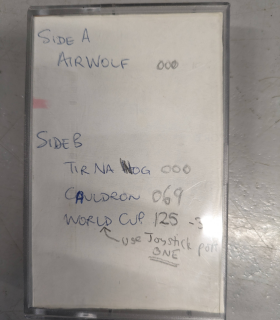 SIDE A
AIRWOLF 000
SIDE B
TIR NA NOG 000
CAULDRON 069
WORLD CUP 125 -3
USE Joystick Port
ONE